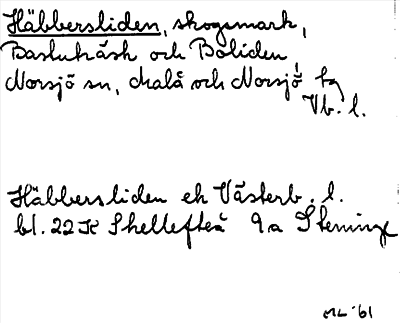 Häbbersliden, skogsmark,
Basluträsk och Boliden,
Norsjö sn, Malå och Norsjö tg
Vb. l.
Häbbersliden ek Västerb. l.
bl. 22K Skellefteå 9a
ML '61